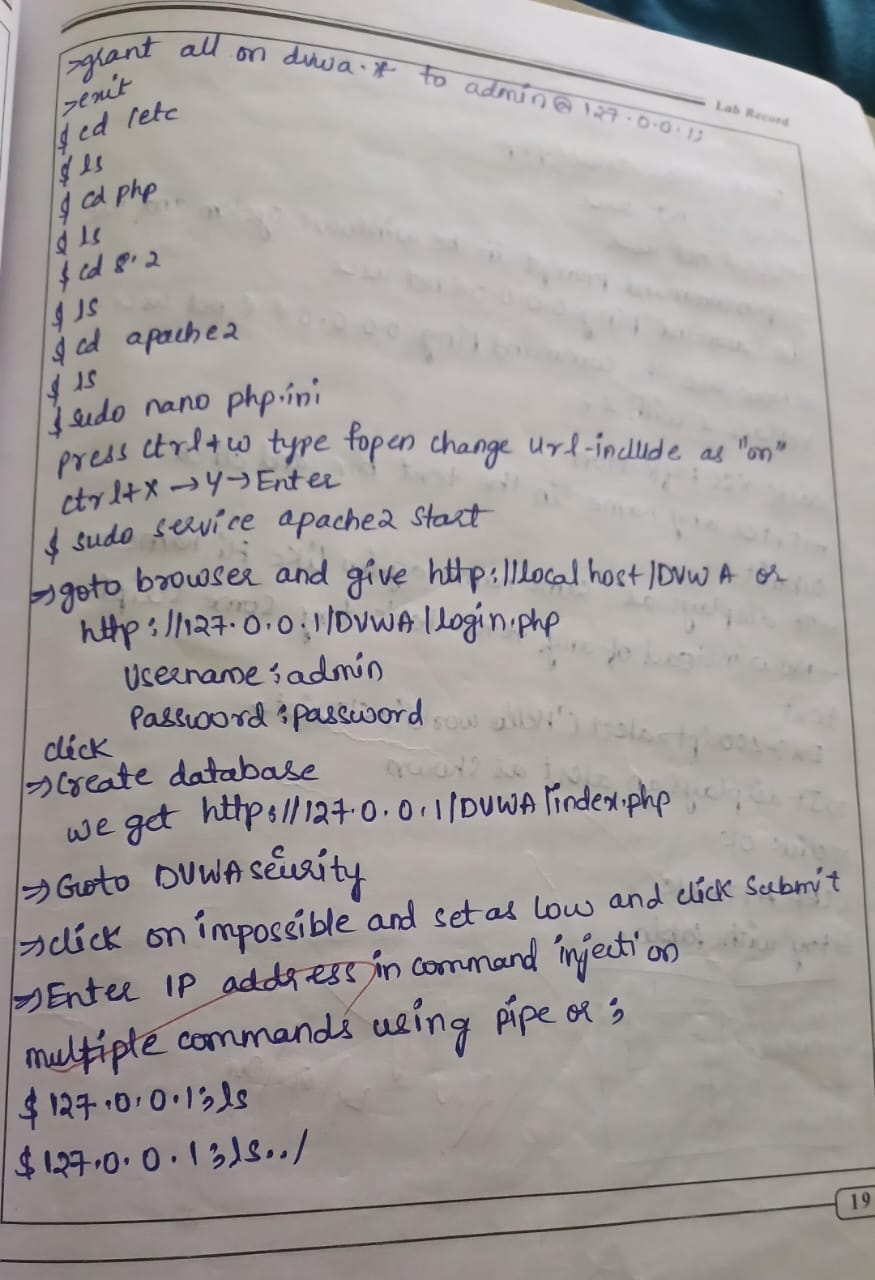 Lab Record
>grant all on dvwa.* to admin@127.0.0.1;
>exit
$ cd /etc
$ ls
$ cd php
$ ls
$ cd 8.2
$ ls
$ cd apache2
$ ls
$ sudo nano php.ini
press ctrl+w type fopen change url-include as "on"
ctrl+x → y → Enter
$ sudo service apache2 start
⇒ goto browser and give http://localhost/DVWA or
http://127.0.0.1/DVWA/login.php
Username : admin
Password : password
click
⇒ Create database
we get http://127.0.0.1/DVWA/index.php
⇒ Goto DVWA security
⇒ click on impossible and set as low and click Submit
⇒ Enter IP address in command injection
multiple commands using pipe or ;
$ 127.0.0.1;ls
$ 127.0.0.1;ls../
19